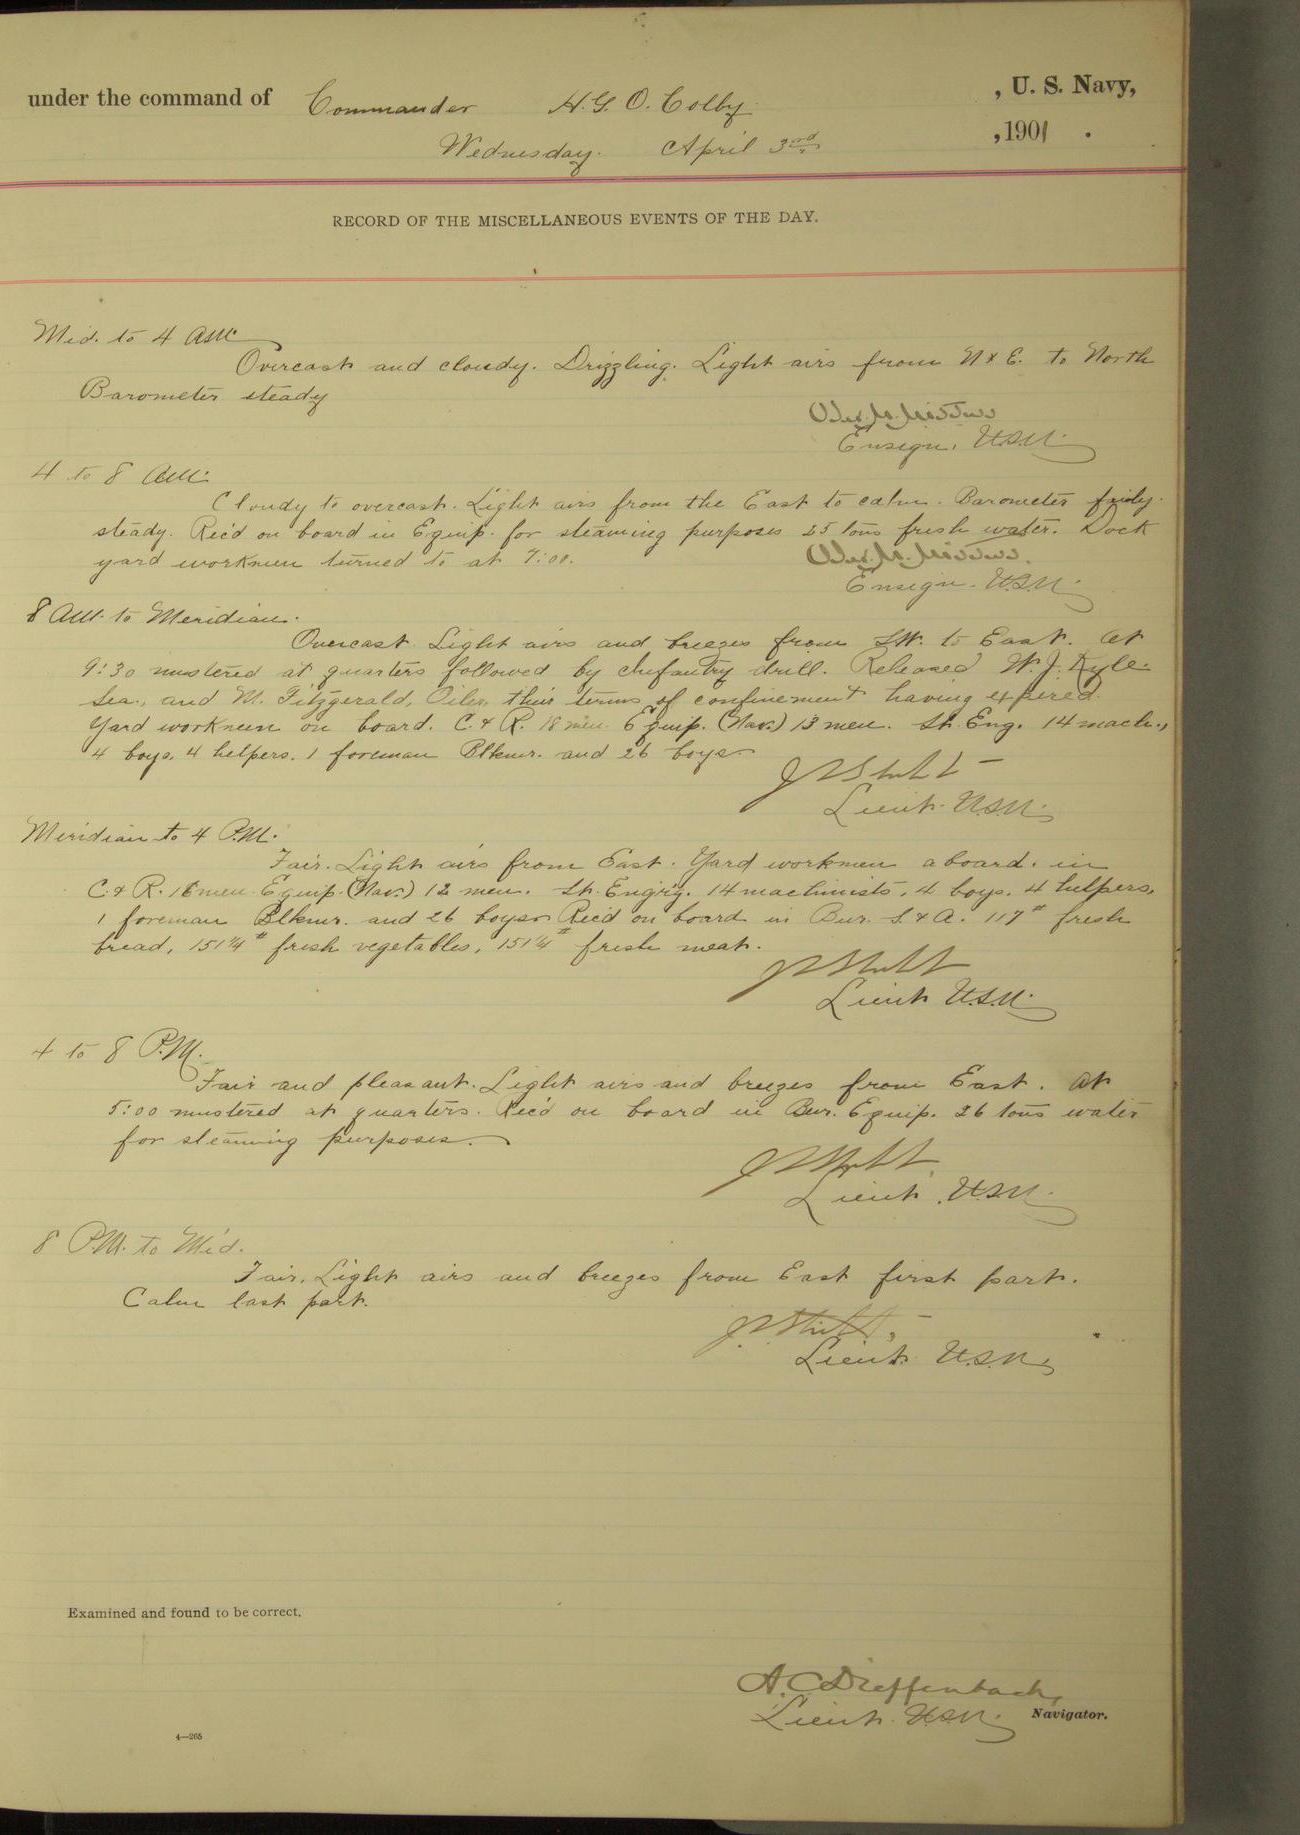 under the command of Commander H. G. O. Colby , U. S. Navy,
Wednesday. April 3rd , 1901 .
RECORD OF THE MISCELLANEOUS EVENTS OF THE DAY.
Mid. to 4 A.M.
Overcast and cloudy. Drizzling. Light airs from N x E. to North
Barometer steady
Ensign, U.S.N.
4 to 8 A.M.
Cloudy to overcast. Light airs from the East to calm. Barometer fairly
steady. Rec'd on board in Equip. for steaming purposes 25 tons fresh water. Dock
yard workmen turned to at 7:00.
Ensign. U.S.N.
8 A.M. to Meridian.
Overcast. Light airs and breezes from S.W. to East. At
9:30 mustered at quarters followed by Infantry drill. Released W. J. Kyle
Sea., and M. Fitzgerald, Oiler, their terms of confinement having expired.
Yard workmen on board. C. & R. 18 men. Equip. (Nav.) 13 men. St. Eng. 14 mach.,
4 boys, 4 helpers. 1 foreman Blkmr. and 26 boys
Lieut. U.S.N.
Meridian to 4 P.M.
Fair. Light airs from East. Yard workmen aboard. in
C. & R. 16 men. Equip. (Nav.) 12 men. St. Eng'rg. 14 machinists, 4 boys. 4 helpers,
1 foreman Blkmr. and 26 boys. Rec'd on board in Bur. S. & A. 117# fresh
bread, 151 1/4# fresh vegetables, 151 1/4# fresh meat.
Lieut. U.S.N.
4 to 8 P.M.
Fair and pleasant. Light airs and breezes from East. At
5:00 mustered at quarters. Rec'd on board in Bur. Equip. 26 tons water
for steaming purposes.
Lieut. U.S.N.
8 P.M. to Mid.
Fair. Light airs and breezes from East first part.
Calm last part.
Lieut. U.S.N.
Examined and found to be correct.
A. C. Dieffenbach,
Lieut. U.S.N. Navigator.
4—265